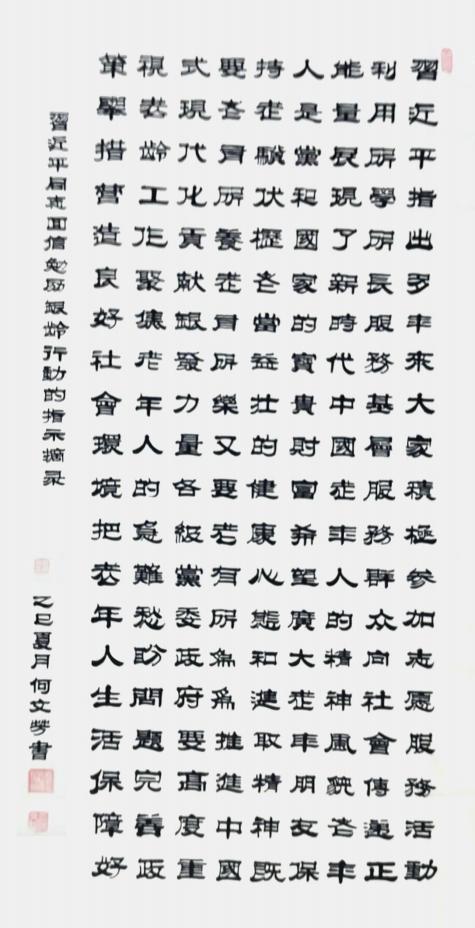 習近平指出多年來大家積極參加志愿服務活動
利用所學所長服務基層服務群众向社會傳遞正
能量展現了新時代中國老年人的精神風貌老年
人是黨和國家的寶貴財富希望廣大老年朋友保
持老驥伏櫪老當益壮的健康心態和進取精神既
要老有所養老有所樂又要老有所為為推進中國
式現代化貢献銀發力量各級黨委政府要高度重
視老齡工作聚焦老年人的急難愁盼問題完善政
策舉措營造良好社會環境把老年人生活保障好
習近平同志回信勉励銀齡行動的指示摘录
乙巳夏月何文書